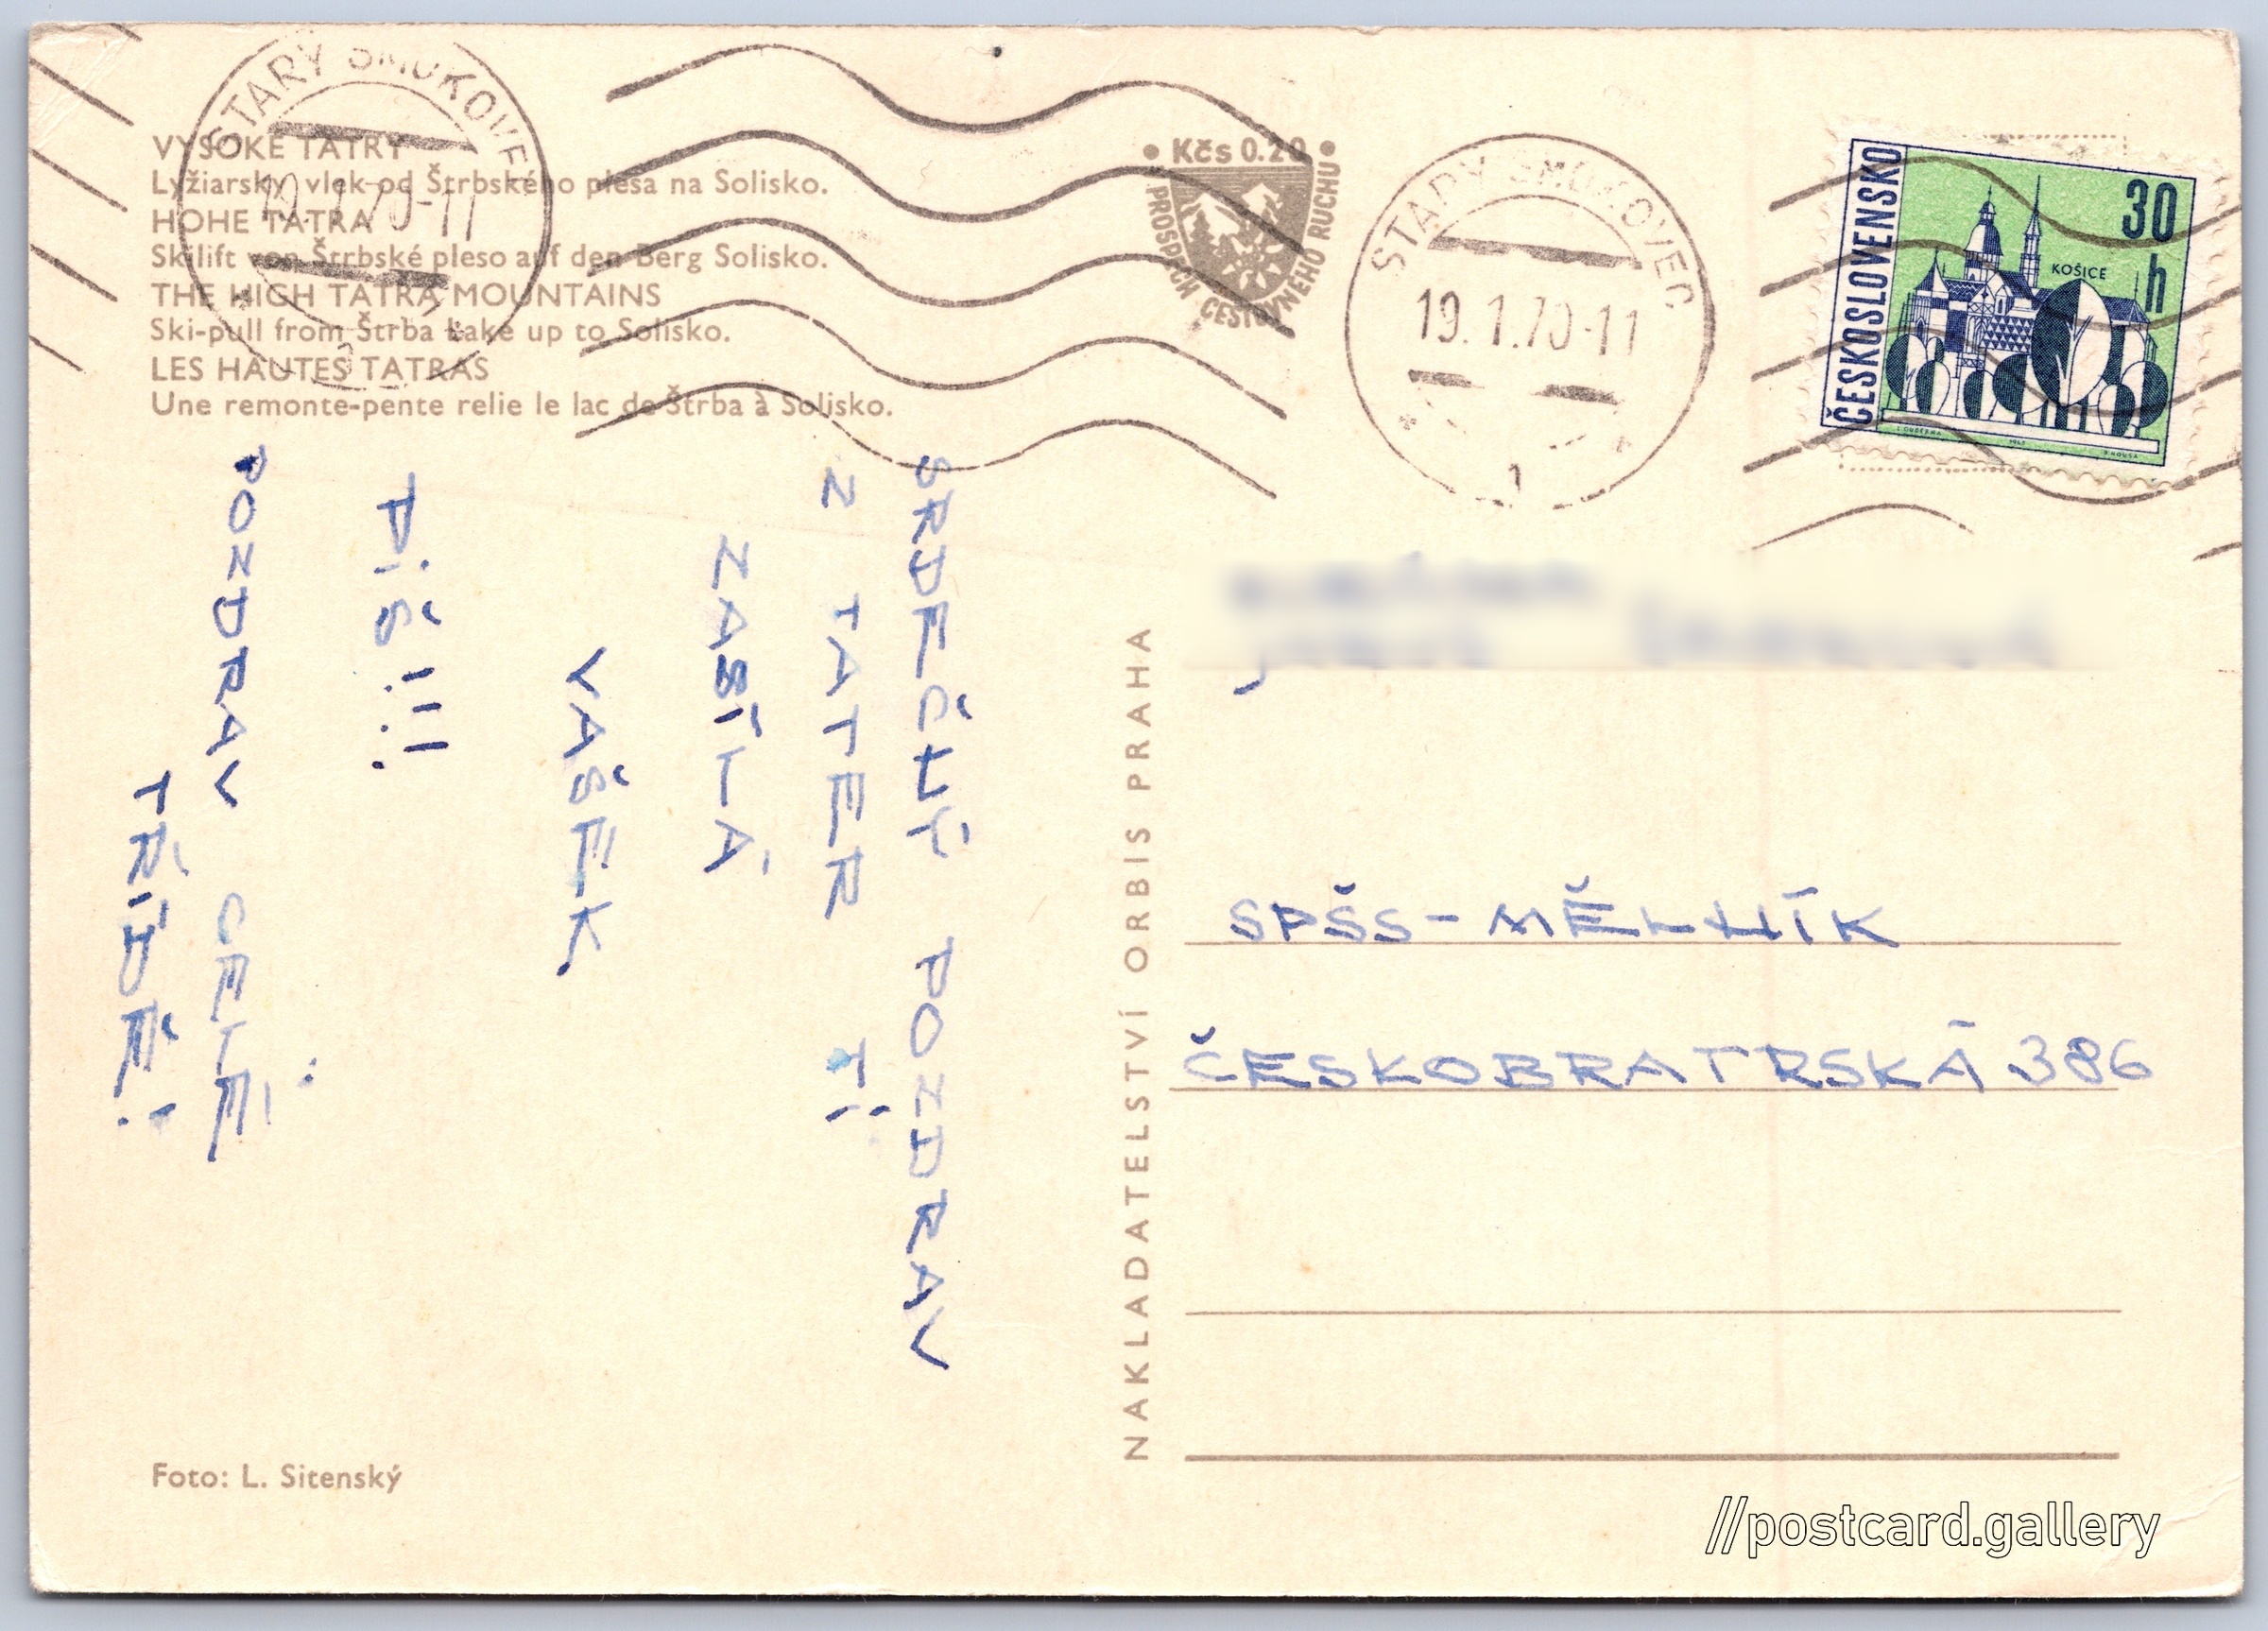 VYSOKÉ TATRY
Lyžiarsky vlek od Štrbského plesa na Solisko.
HOHE TATRA
Skilift von Štrbské pleso auf den Berg Solisko.
THE HIGH TATRA MOUNTAINS
Ski-pull from Štrba Lake up to Solisko.
LES HAUTES TATRAS
Une remonte-pente relie le lac de Štrba à Solisko.
STARÝ SMOKOVEC
19.1.70-11
1
Kčs 0.20
PROSPĚCH CESTOVNÉHO RUCHU
STARÝ SMOKOVEC
19.1.70-11
1
ČESKOSLOVENSKO
30
h
KOŠICE
SRDEČNÝ POZDRAV
Z TATER TI
ZASÍLÁ
VAŠEK.
PIŠ!!!
POZDRAV CELÉ
TŘÍDĚ!
NAKLADATELSTVÍ ORBIS PRAHA
SPŠS-MĚLNÍK
ČESKOBRATRSKÁ 386
Foto: L. Sitenský
//postcard.gallery